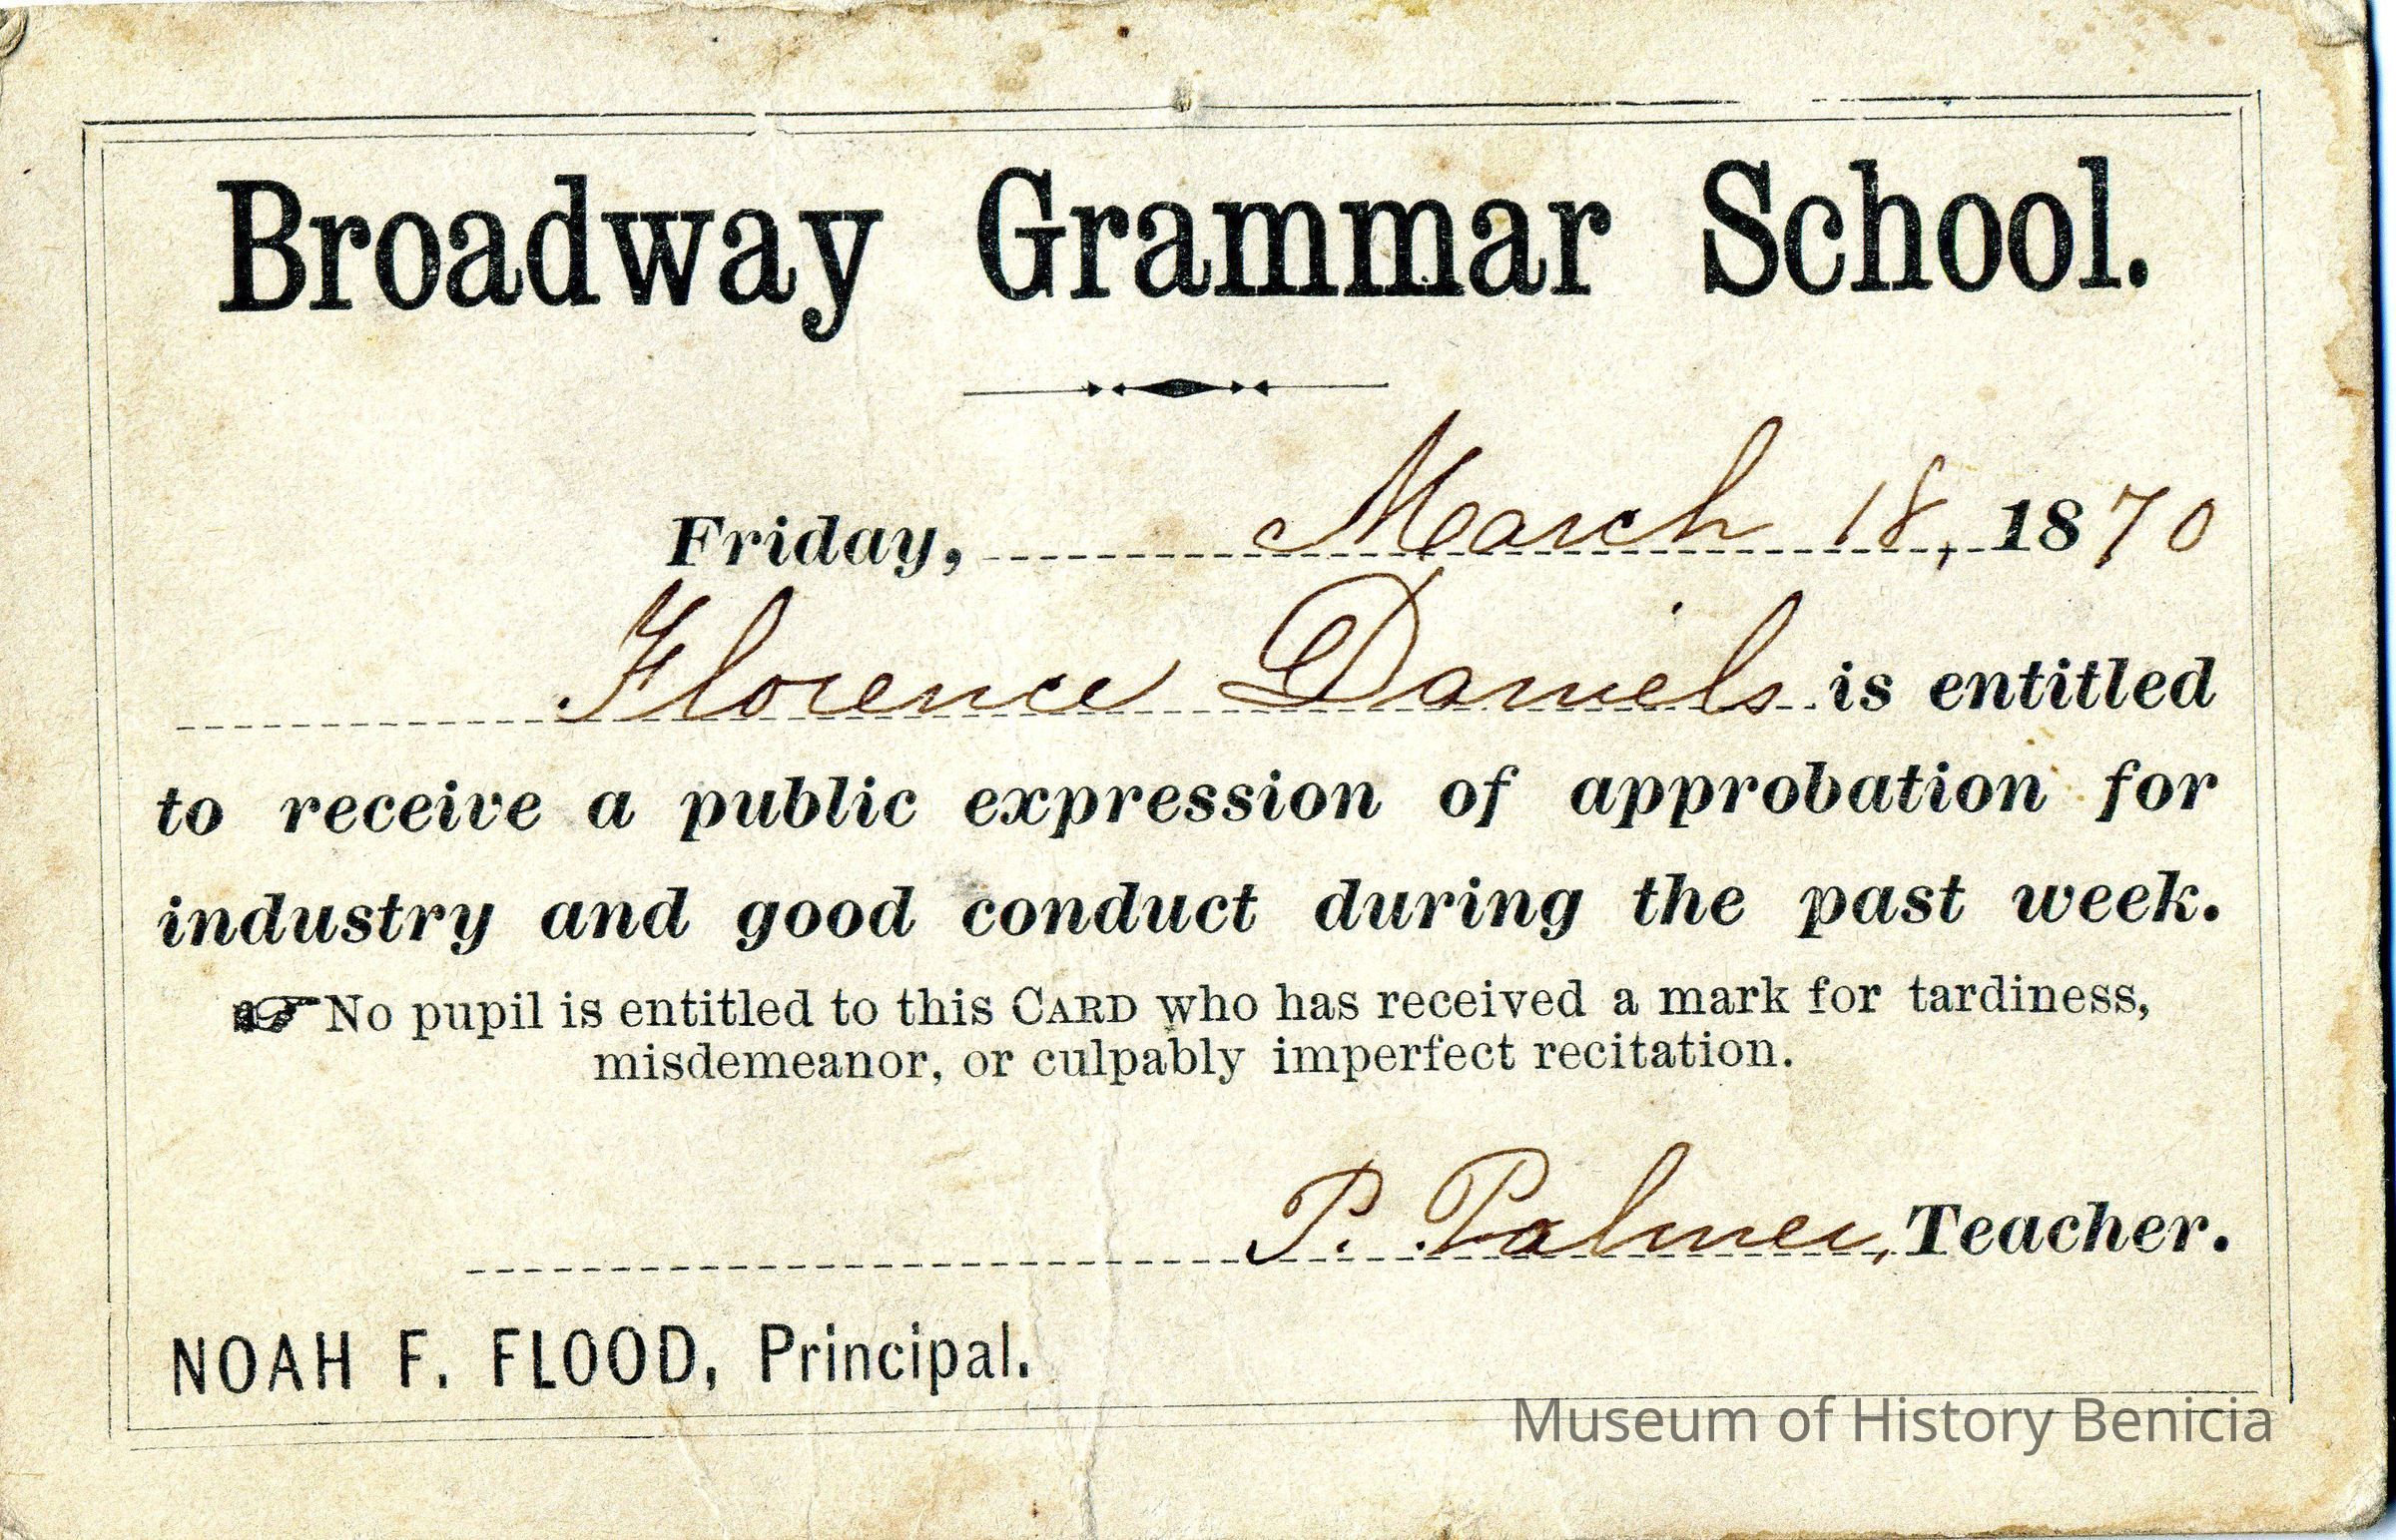 Broadway Grammar School.
Friday, March 18, 1870
Florence Daniels is entitled
to receive a public expression of approbation for
industry and good conduct during the past week.
☞ No pupil is entitled to this CARD who has received a mark for tardiness,
misdemeanor, or culpably imperfect recitation.
P. Palmer, Teacher.
NOAH F. FLOOD, Principal.
Museum of History Benicia